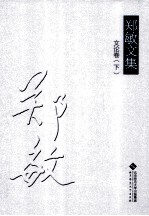 郑敏文集
文论卷（下）
郑敏